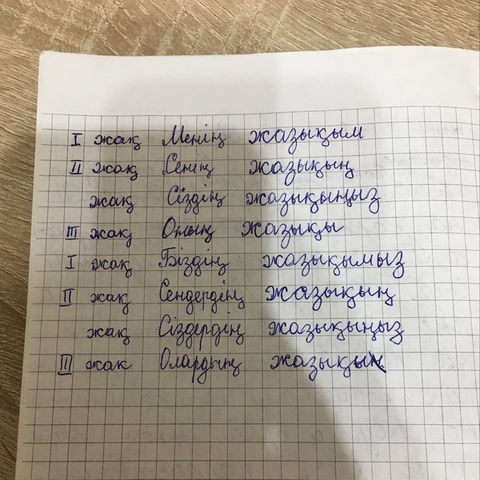 I жақ Менің жазықым
II жақ Сенің жазықың
жақ Сіздің жазықыңыз
III жақ Оның жазықы
I жақ Біздің жазықымыз
II жақ Сендердің жазықың
жақ Сіздердің жазықыңыз
III жак Олардың